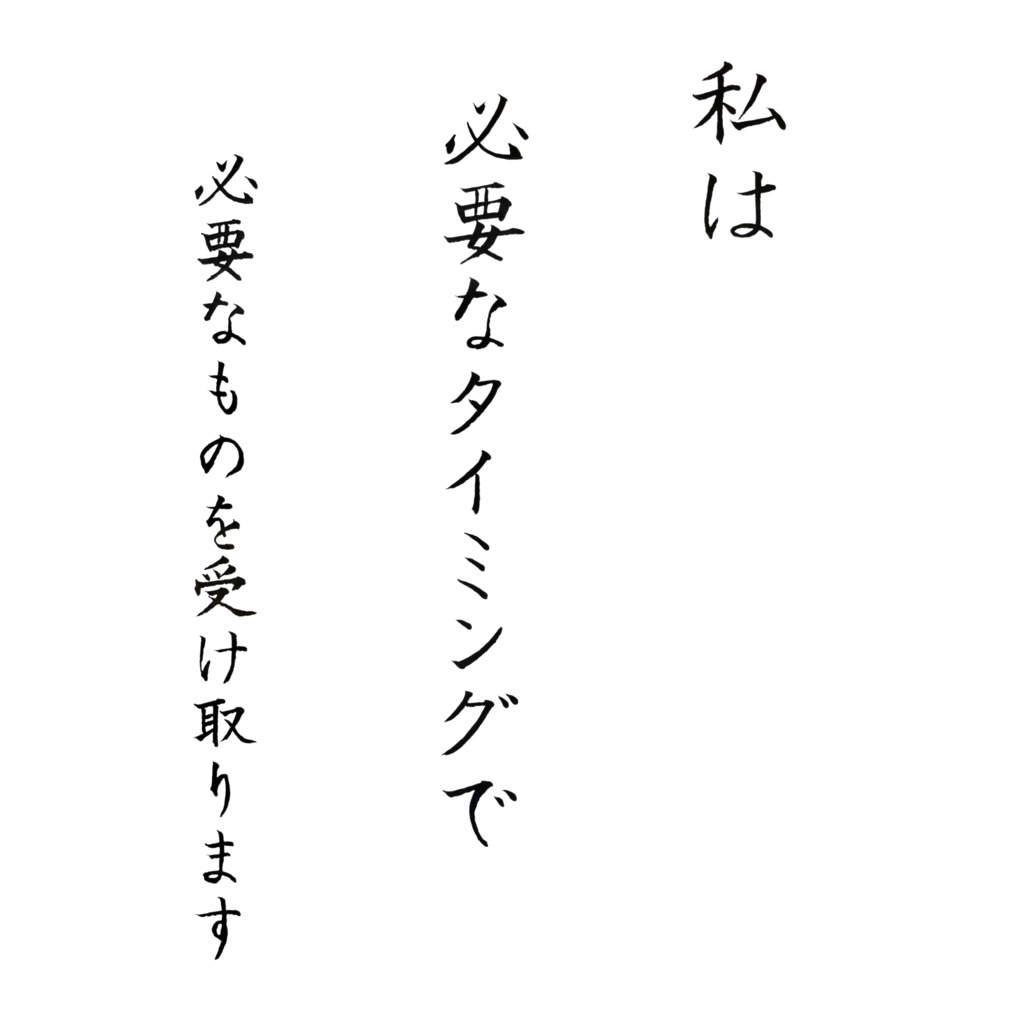 私は
必要なタイミングで
必要なものを受け取ります